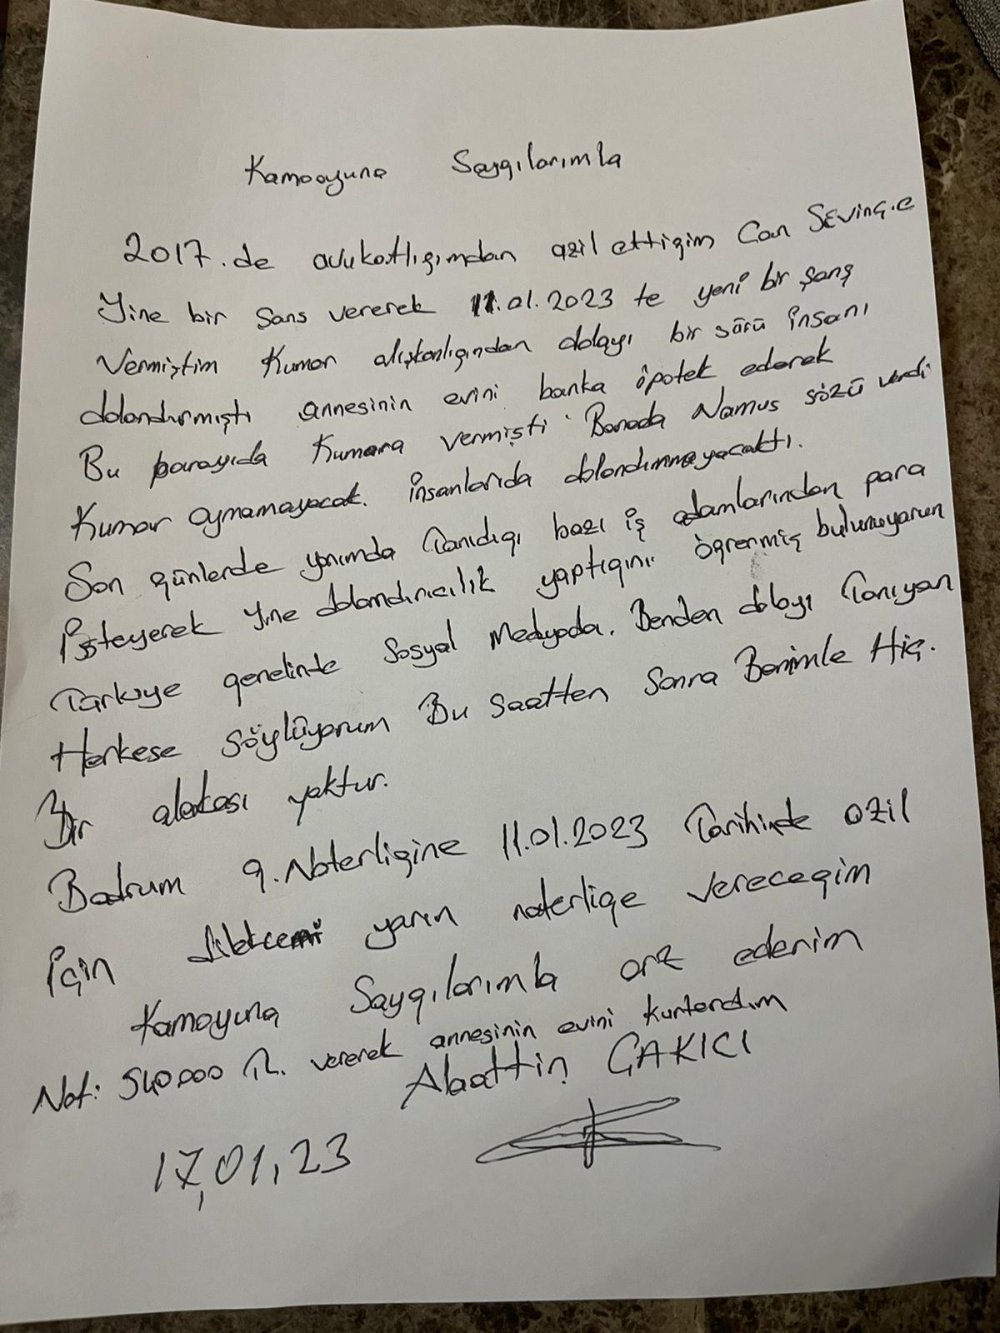 Kamooyuna Saygılarımla
2017.de avukatlığımdan azil ettiğim Can SEVinç.e
Yine bir Sans vererek 11.01.2023 te yeni bir şans
Vermiştim Kumar alışkanlığından dolayı bir sürü insanı
dolandırmıştı annesinin evini banka ipotek ederek
Bu parayıda Kumara vermişti Banada Namus sözü verdi
Kumar oynamayacak. insanlarıda dolandırmayacaktı.
Son günlerde yanımda Tanıdığı bazı iş adamlarından para
isteyerek Yine dolandırıcılık yaptığını öğrenmiş bulunuyorum
Türkiye genelinte Sosyal Medyada. Benden dolayı Tanıyan
Herkese söylüyorum Bu saatten Sonra Benimle Hiç.
Bir alakası yoktur.
Bodrum 9.Noterliğine 11.01.2023 Tarihinde azil
için yarın noterliğe vereceğim
Kamoyuna Saygılarımla arz ederim
Not: 540000 TL. vererek annesinin evini kurtardım
Alaattin ÇAKICI
17,01,23